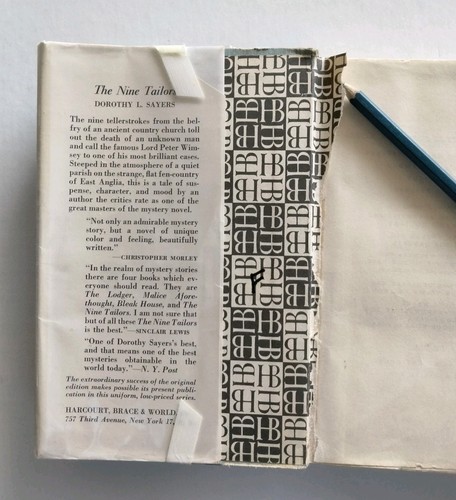 The Nine Tailors
DOROTHY L. SAYERS
The nine tellerstrokes from the bel-
fry of an ancient country church toll
out the death of an unknown man
and call the famous Lord Peter Wim-
sey to one of his most brilliant cases.
Steeped in the atmosphere of a quiet
parish on the strange, flat fen-country
of East Anglia, this is a tale of sus-
pense, character, and mood by an
author the critics rate as one of the
great masters of the mystery novel.
"Not only an admirable mystery
story, but a novel of unique
color and feeling, beautifully
written."
—CHRISTOPHER MORLEY
"In the realm of mystery stories
there are four books which ev-
eryone should read. They are
The Lodger, Malice Afore-
thought, Bleak House, and The
Nine Tailors. I am not sure that
but of all these The Nine Tailors
is the best."—SINCLAIR LEWIS
"One of Dorothy Sayers's best,
and that means one of the best
mysteries obtainable in the
world today."—N. Y. Post
The extraordinary success of the original
edition makes possible its present publi-
cation in this uniform, low-priced series.
HARCOURT, BRACE & WORLD,
757 Third Avenue, New York 17,